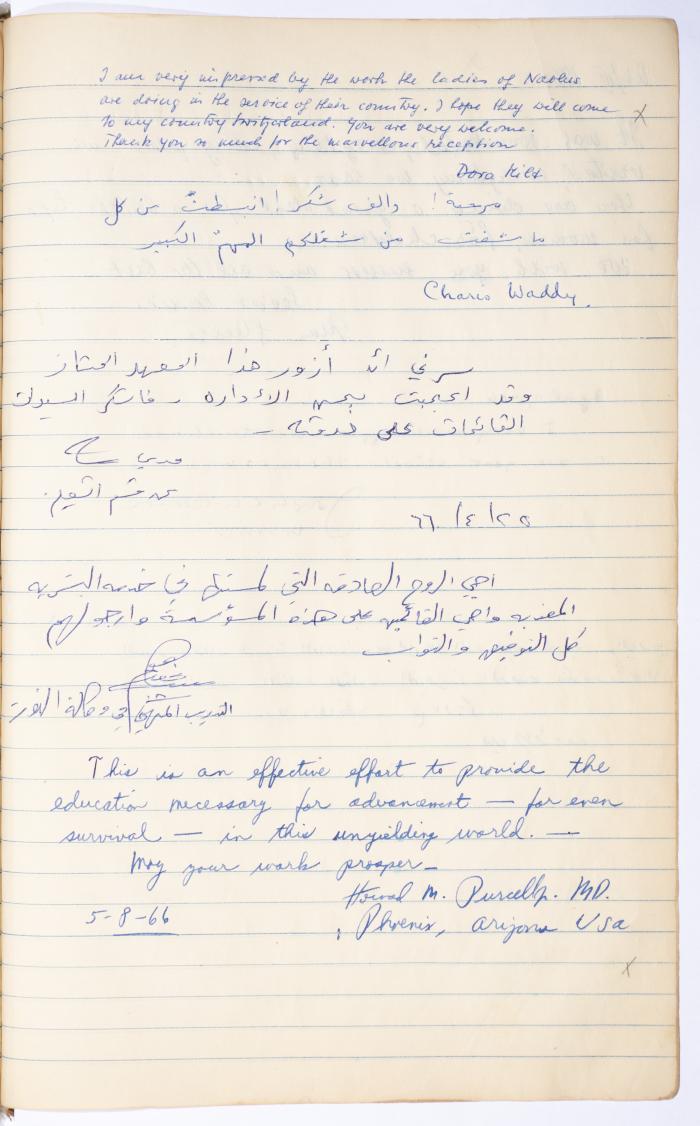 I am very impressed by the work the ladies of Nablus
are doing in the service of their country. I hope they will come
to my country Switzerland. You are very welcome.
Thank you so much for the marvellous reception
Dora
مرحبة! والف شكر! انبسطت من كل
ما شفت من شغلكم المهمّ الكبير
Charis Waddy.
سرني أن أزور هذا المعهد الممتاز
وقد اعجبت بحسن الأداره - فاشكر السيدات
القائمات على خدمته -
٢٥/٤/٦٦
احيي الروح الصادقه التي لمستها في خدمه البشريه
المعذبه واحيي القائمين على هذه المؤسسة وارجو لهم
كل التوفيق والثواب
التدريب المهني في وكالة الغوث
This is an effective effort to provide the
education necessary for advancement — for even
survival — in this unyielding world. —
May your work prosper -
M. Purcell MD.
5-8-66
Phoenix, Arizona USA